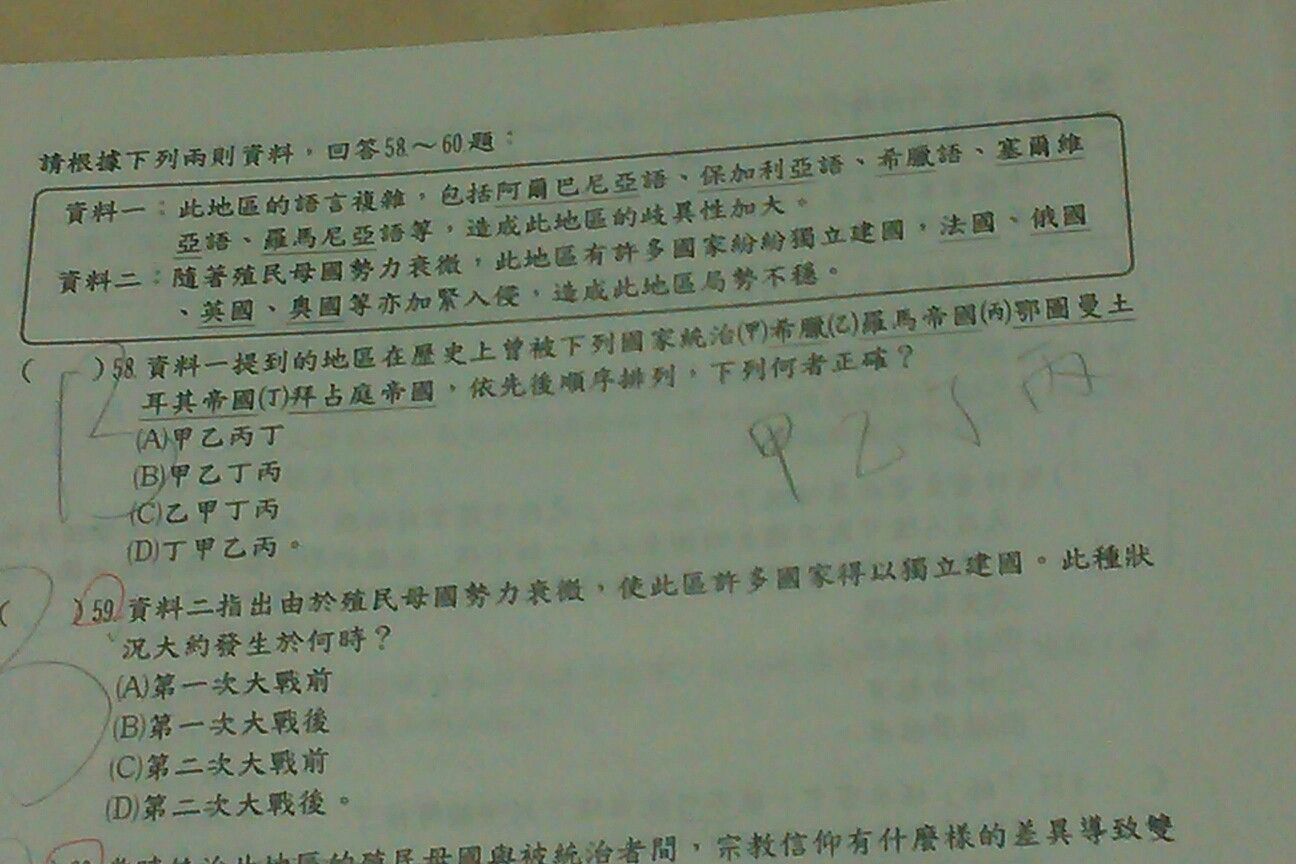 請根據下列兩則資料，回答58～60題：
資料一：此地區的語言複雜，包括阿爾巴尼亞語、保加利亞語、希臘語、塞爾維
亞語、羅馬尼亞語等，造成此地區的歧異性加大。
資料二：隨著殖民母國勢力衰微，此地區有許多國家紛紛獨立建國，法國、俄國
、英國、奧國等亦加緊入侵，造成此地區局勢不穩。
( )58.資料一提到的地區在歷史上曾被下列國家統治(甲)希臘(乙)羅馬帝國(丙)鄂圖曼土
耳其帝國(丁)拜占庭帝國，依先後順序排列，下列何者正確？
(A)甲乙丙丁
(B)甲乙丁丙
(C)乙甲丁丙
(D)丁甲乙丙。
甲乙丁丙
B
( )59.資料二指出由於殖民母國勢力衰微，使此區許多國家得以獨立建國。此種狀
況大約發生於何時？
(A)第一次大戰前
(B)第一次大戰後
(C)第二次大戰前
(D)第二次大戰後。
B
此地區的殖民母國與被統治者間，宗教信仰有什麼樣的差異導致雙